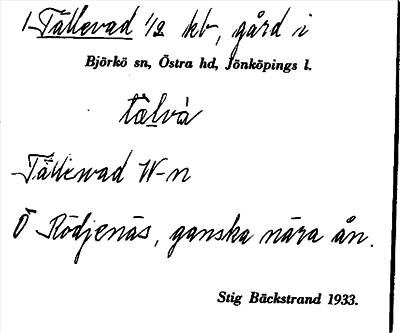 1 Tällevad 1/2 kb, gård i
Björkö sn, Östra hd, Jönköpings l.
tälvà
Tällewad W-n
Ö Rödjenäs, ganska nära ån.
Stig Bäckstrand 1933.